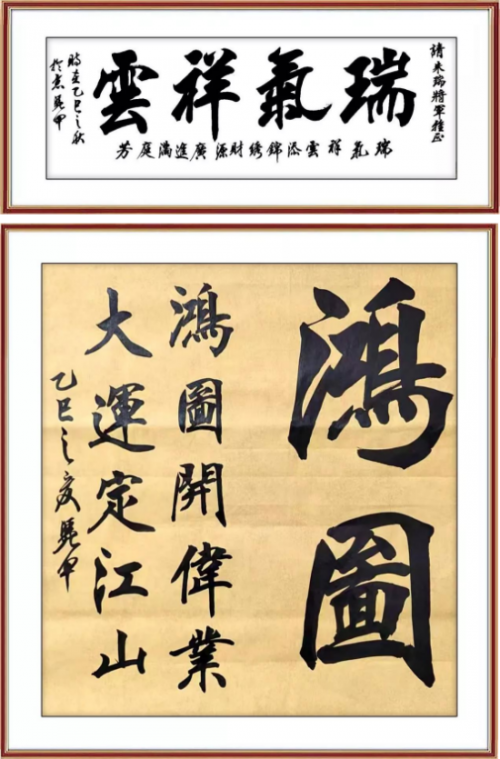 請朱瑞將軍雅正
瑞氣祥雲
瑞氣祥雲添錦綉財源廣進滿庭芳
時在乙巳之秋
於京
鴻圖
鴻圖開偉業
大運定江山
乙巳之夏